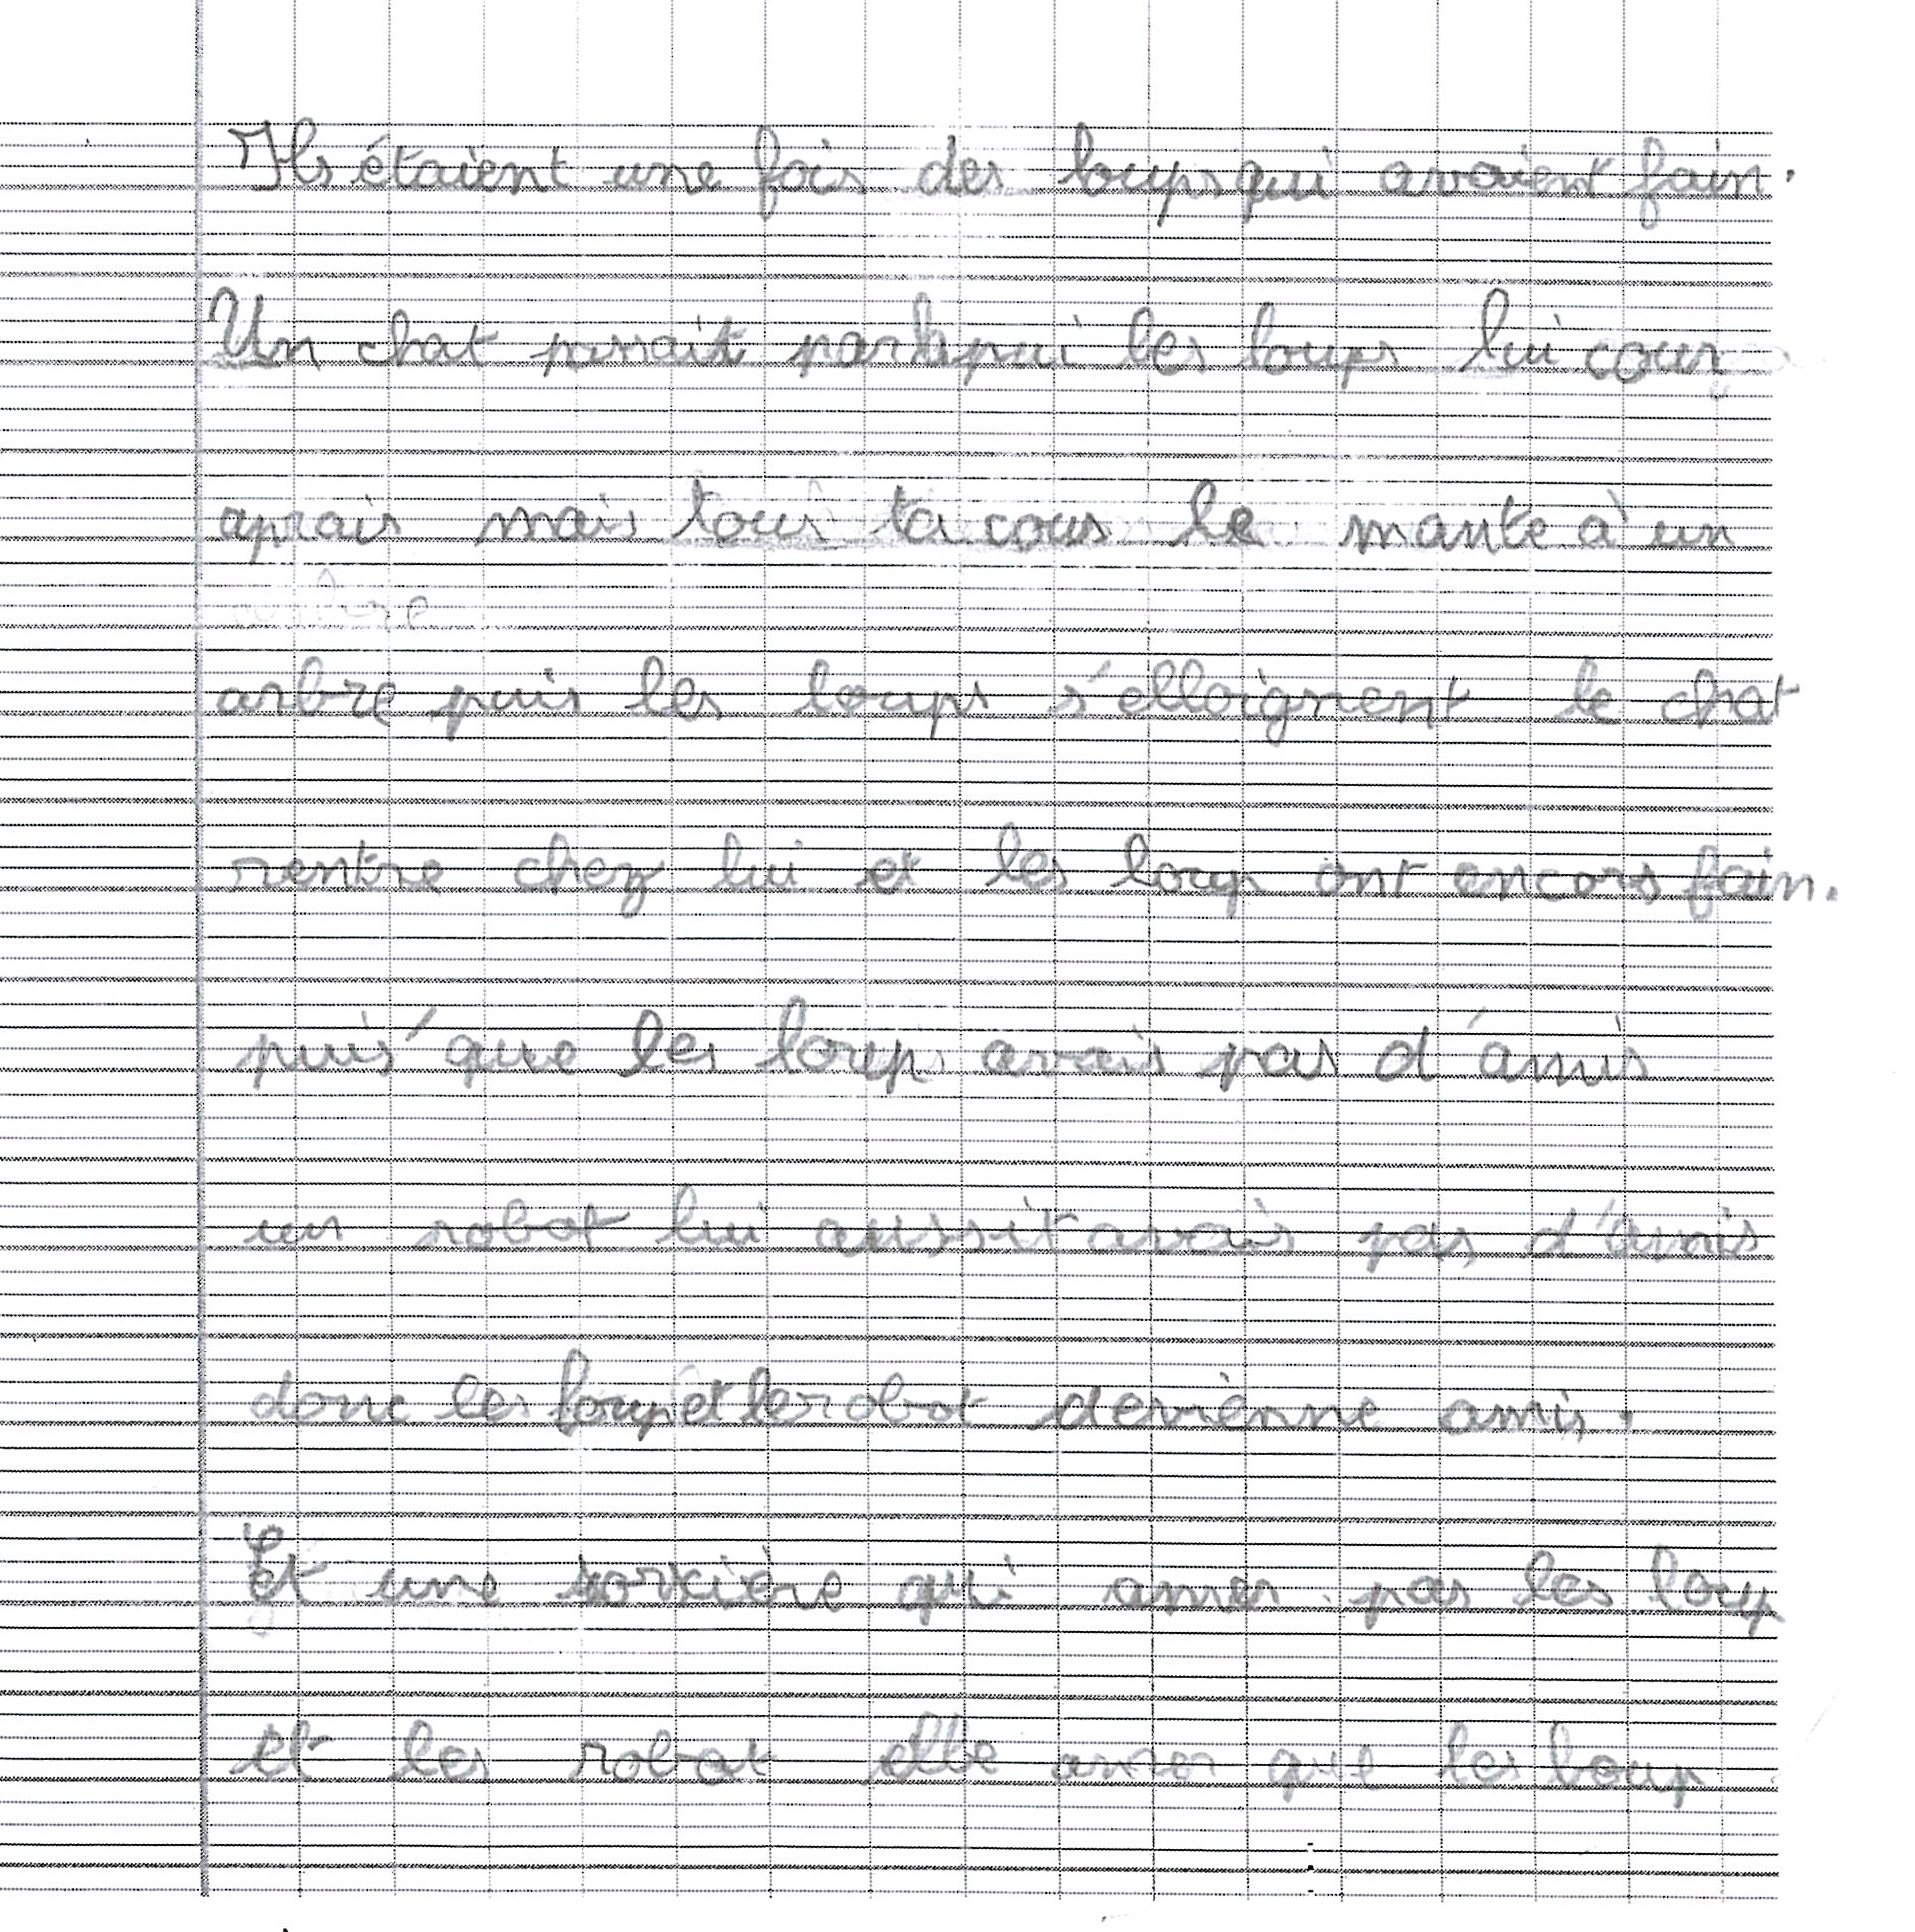 Ils étaient une fois des loups qui avaient fain.
Un chat passait par la puis les loups lui cour
aprais mais tous ta cous le mante à un
arbre puis les loups s'elloignent le chat
rentre chez lui et les loup ont encors fain.
puis'que les loups avais pas d'amis
un robot lui aussit avais pas d'amis
donc les loup et le robot deviènne amis.
Et une sorcière qui amer pas les loup
et les robot elle amer que les loup